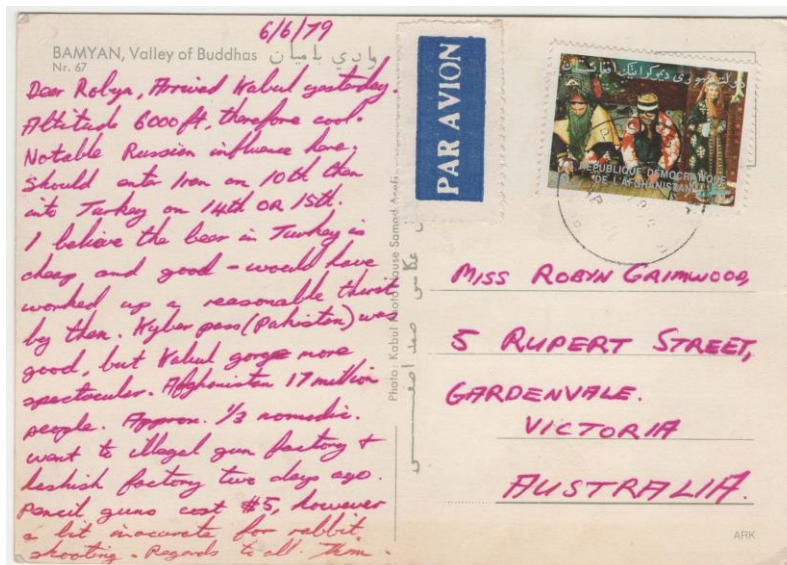 6/6/79
BAMYAN, Valley of Buddhas وادي باميان
Nr. 67
Dear Robyn, Arrived Kabul yesterday.
Altitude 6000ft, therefore cool.
Notable Russian influence here.
Should enter Iran on 10th then
into Turkey on 14th OR 15th.
I believe the beer in Turkey is
cheap and good - would have
worked up a reasonable thirst
by then. Kyber pass (Pakistan) was
good, but Kabul gorge more
spectacular. Afghanistan 17 million
people. Approx. 1/3 nomadic.
Went to illegal gun factory +
hashish factory two days ago.
Pencil guns cost $5, however
a bit inacurate for rabbit
shooting. Regards to all.
Photo: Kabul Photo House Samad
PAR AVION
REPUBLIQUE DEMOCRATIQUE
DE L'AFGHANISTAN
MISS ROBYN GRIMWOOD,
5 RUPERT STREET,
GARDENVALE.
VICTORIA
AUSTRALIA.
ARK